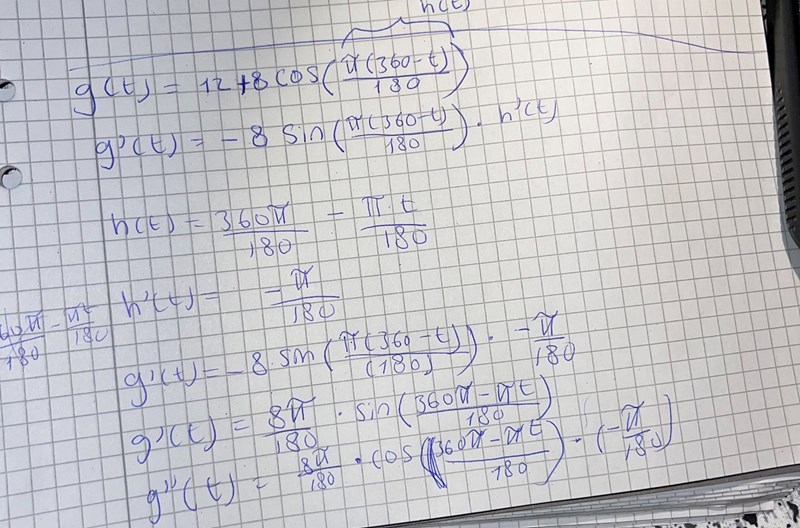 h(t)
g(t) = 12+8 cos(π(360-t)/180)
g'(t) = -8 sin(π(360-t)/180) · h'(t)
h(t) = 360π/180 - π t/180
h'(t) = -π/180
60π/180 - πt/180
g'(t) = -8 sin(π(360-t)/(180)) · -π/180
g'(t) = 8π/180 · sin(360π-πt/180)
g''(t) = 8π/180 · cos(360π-πt/180) · (-π/180)